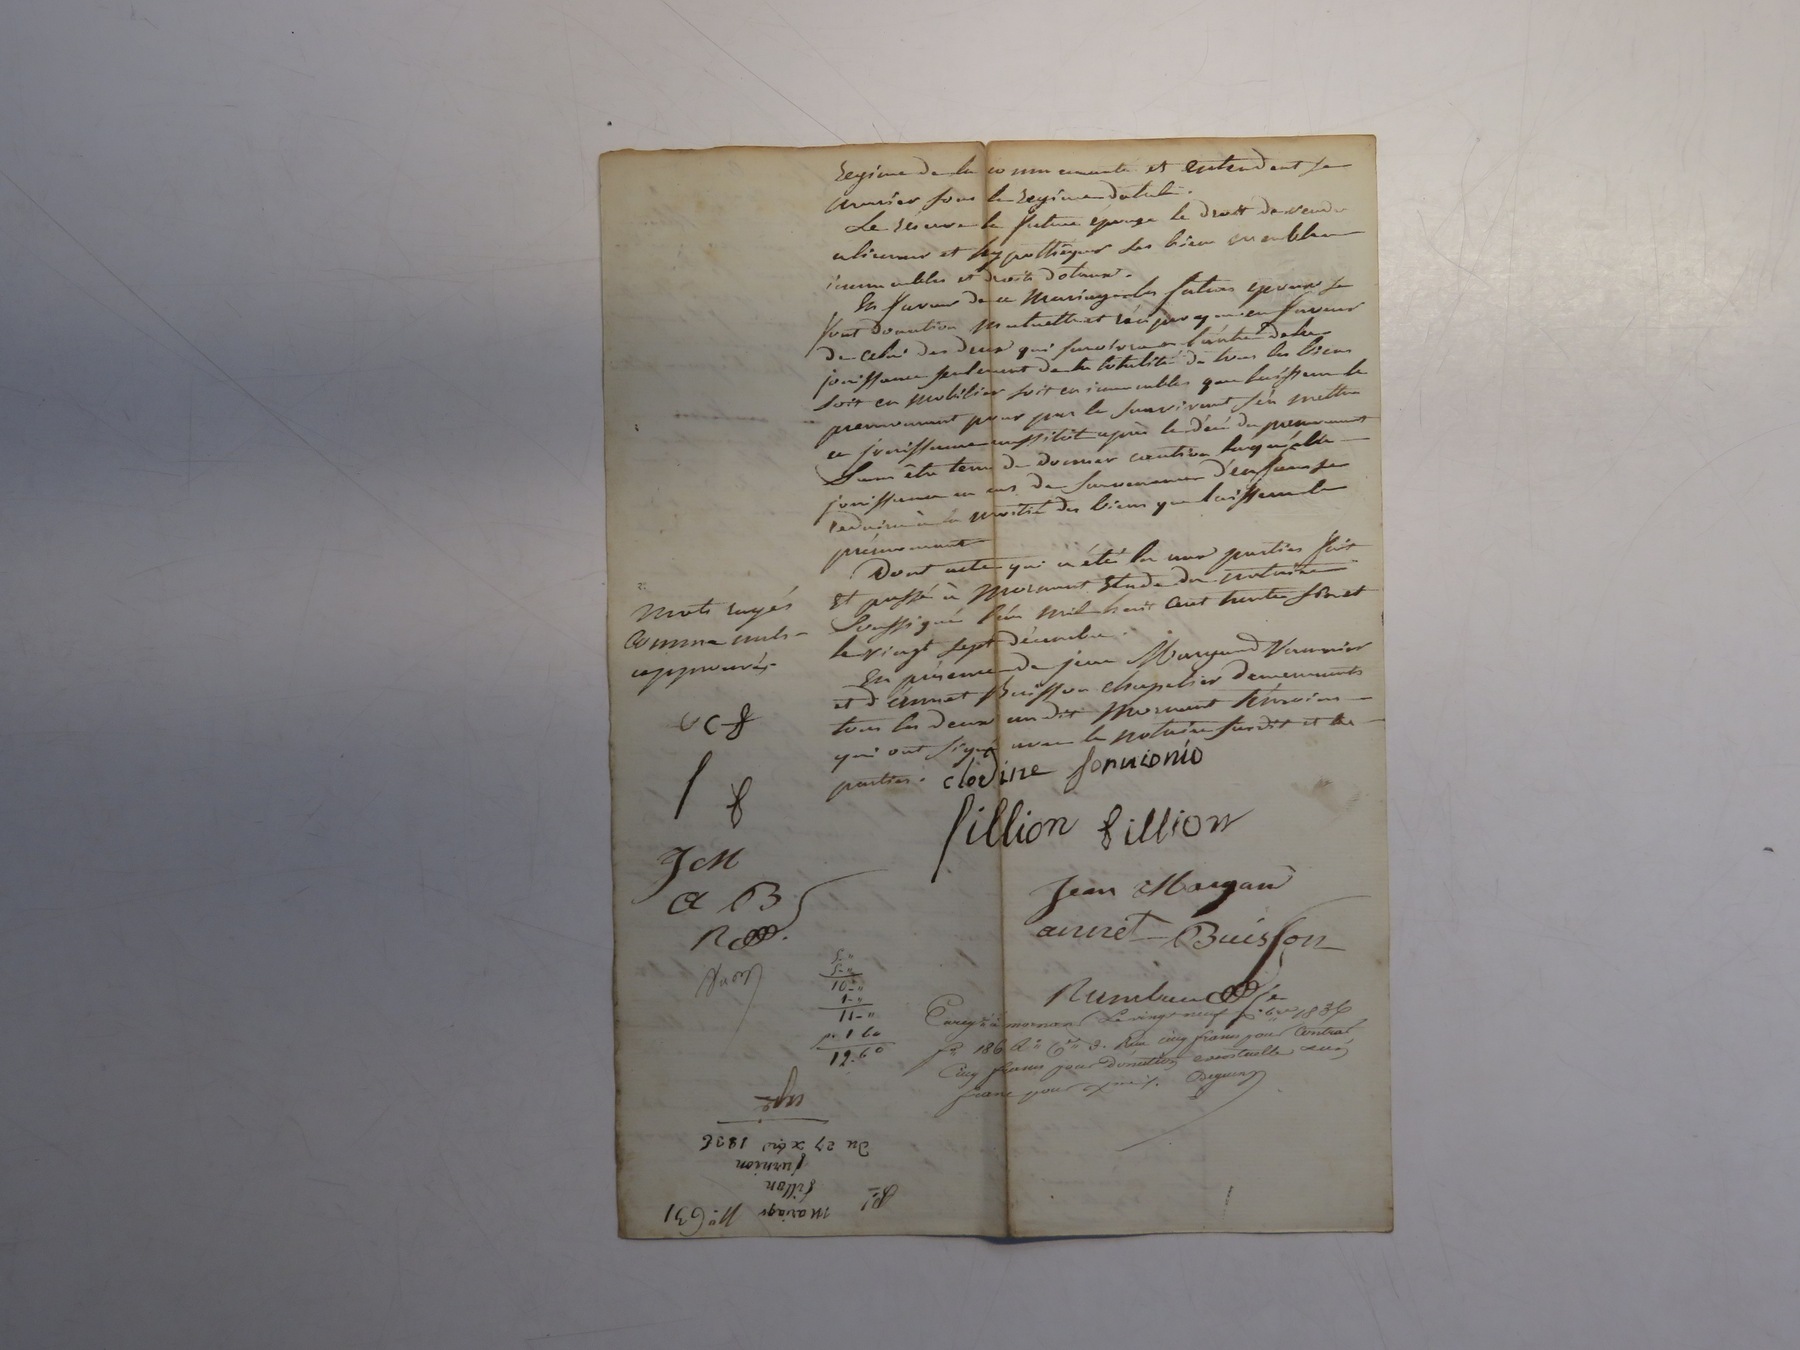 regime de la communauté et entendent se
marier sous le regime dotale.
Se réserve la future épouse le droit de vendre
aliener et hypothequer ses biens meubles
immeubles et droits dotaux.
En faveur de ce mariage les futurs epoux se
font donation mutuelle et réciproque en faveur
de celui des deux qui survivra à l'autre de la
jouissance seulement de la totalité de tous les biens
soit en mobilier soit en immeubles que laissera le
premourant pour par le survivant s'en mettre
en jouissance aussitôt après le décé du premourant
Sans être tenu de donner caution laquelle
jouissance en cas de survenance d'enfans se
reduira à la moitié des biens que laissera le
prémourant
Dont acte qui a été lu aux parties fait
et passé à Mornant Etude du notaire
Soussigné l'an mil huit cent trente six et
le vingt sept décembre.
En présence de jean Margand Vannier
et d'annet Buisson chapelier demeurants
tous les deux au dit Mornant témoins
qui ont signé avec le notaire susdit et les
parties. clodine fornionio
fillion fillion
Jean Margand
annet Buisson
Enreg. à mornant Le vingt neuf Xbre 1836
fo 186 Ro Ce 3. Reçu cinq francs pour Contrat
Cinq francs pour donation eventuelle et un
franc pour
mots rayés
comme nuls
approuvés
c f
f f
J M
A B
R
5 "
5 "
10 - "
1 - "
11 - "
1 60
12.60
Du 27 xbre 1836
furnion
fillon
mariage No 631